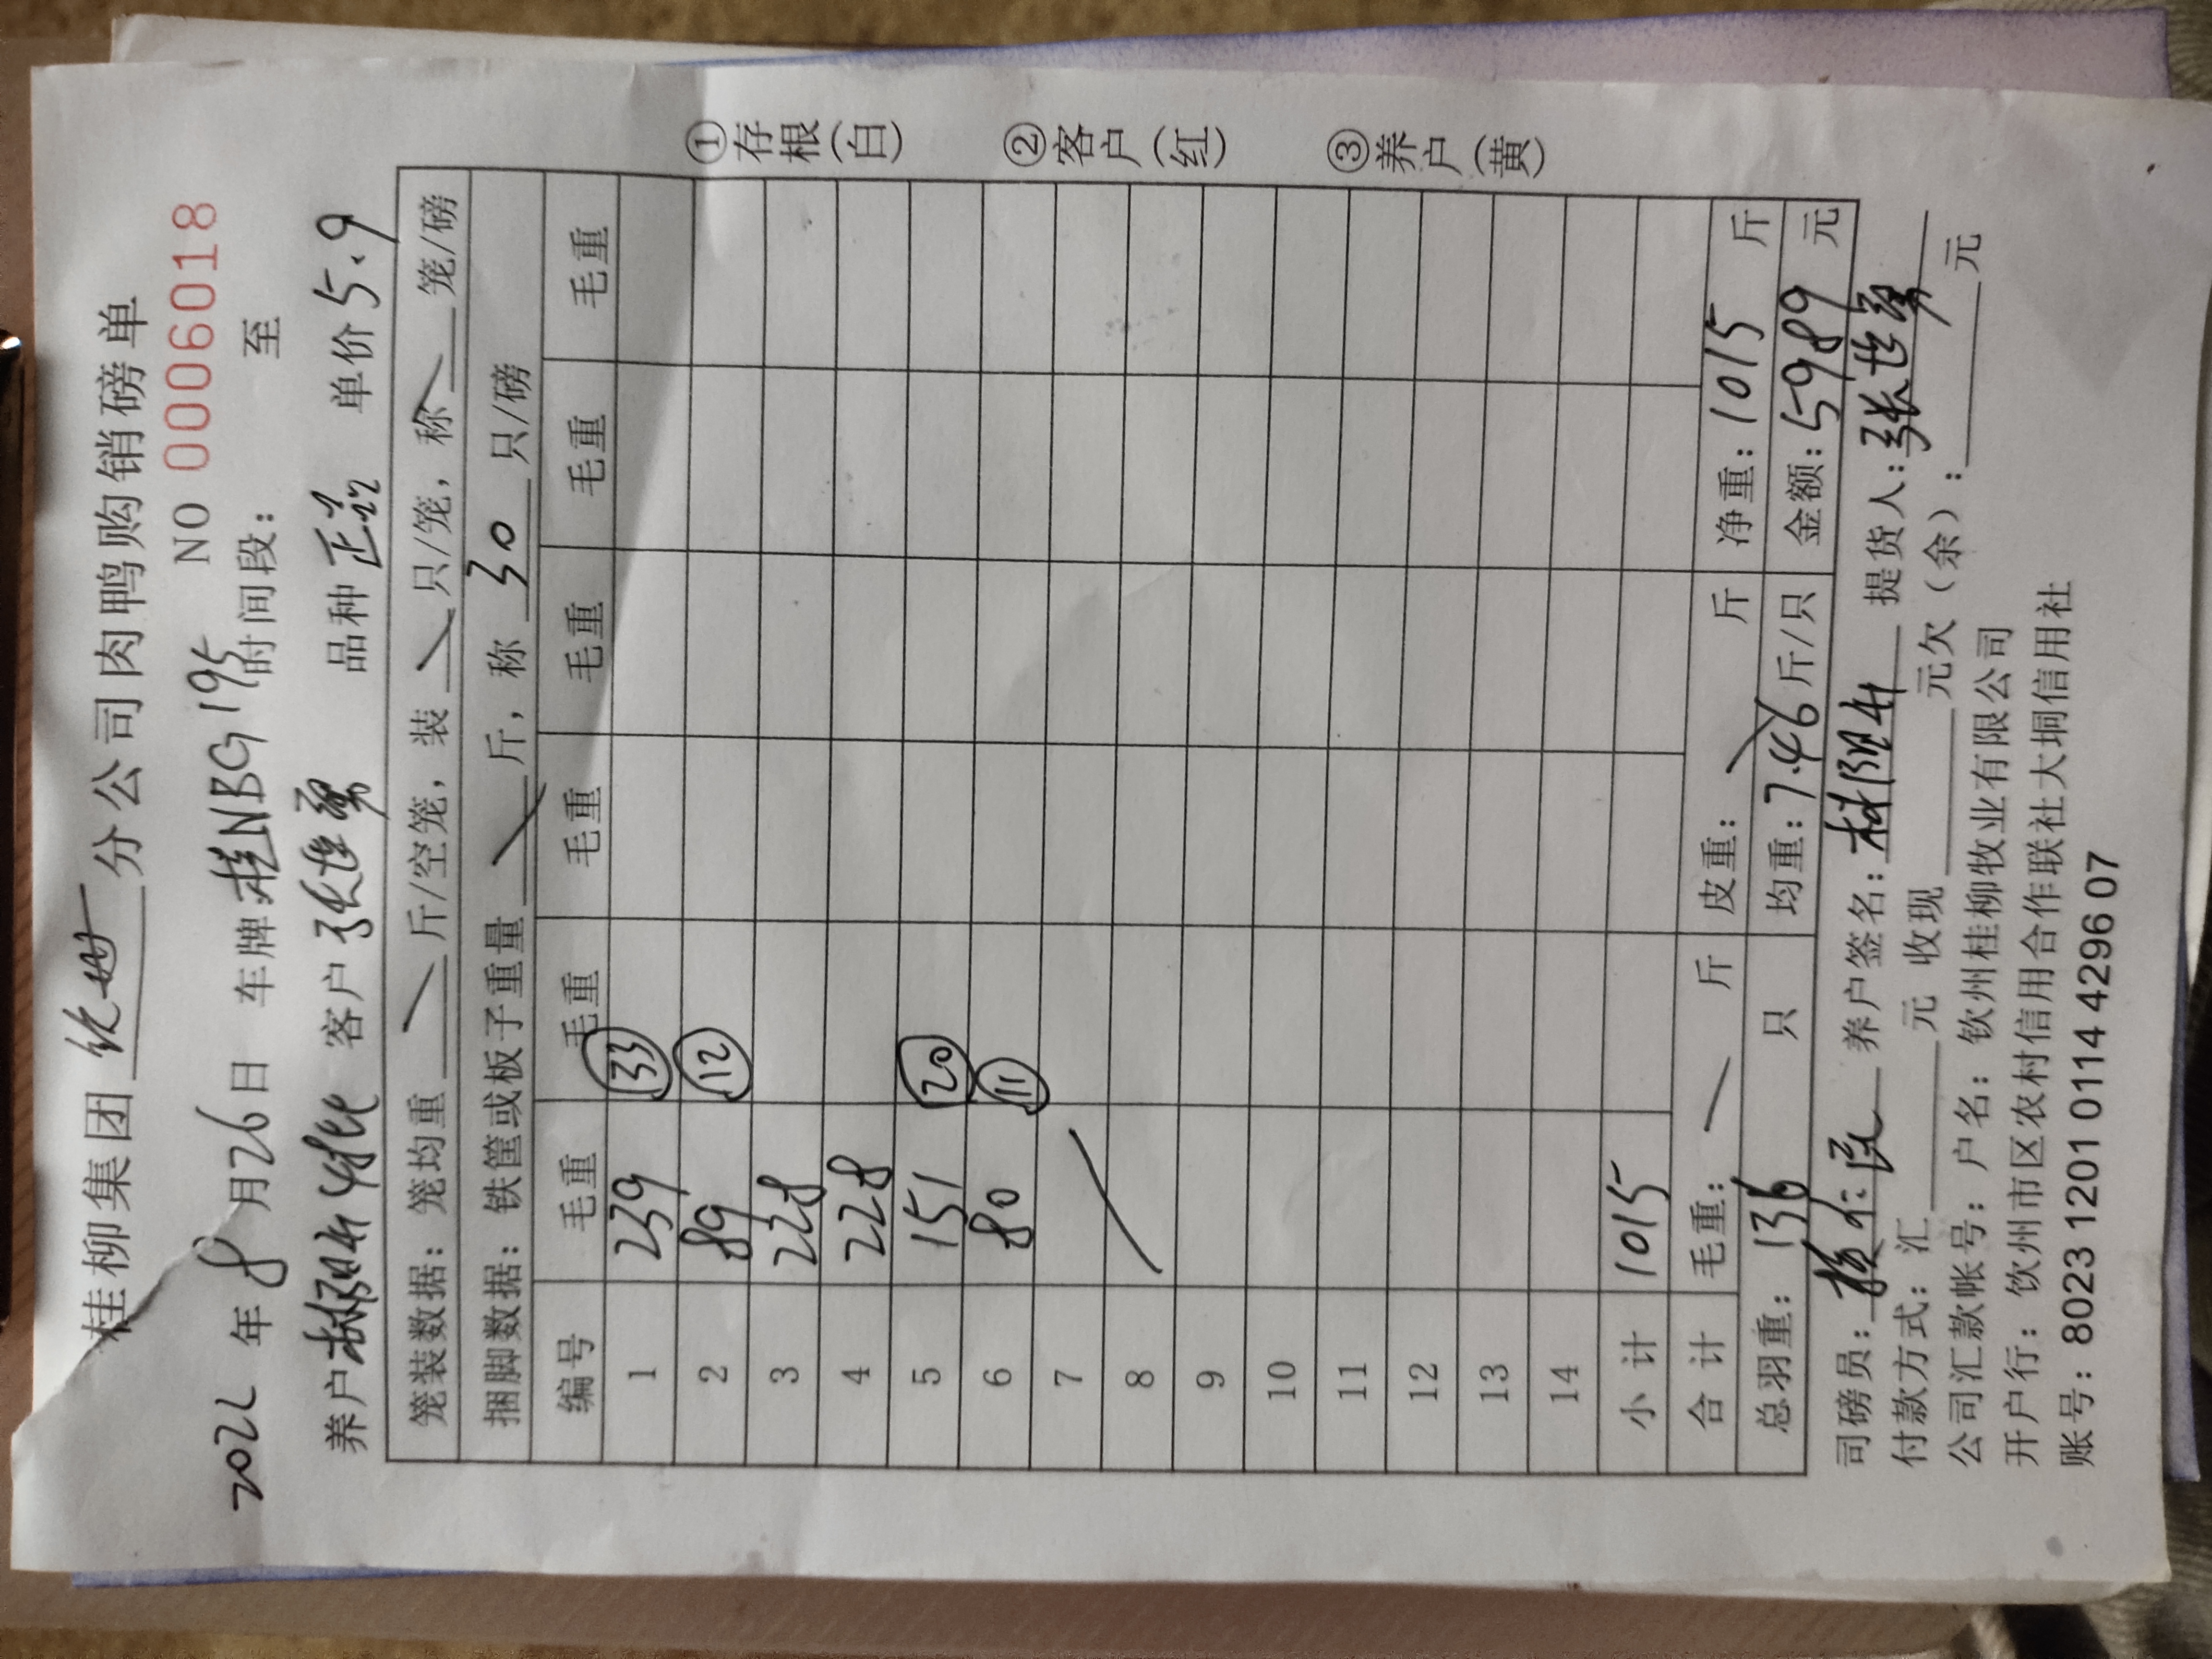 桂柳集团 钦州 分公司肉鸭购销磅单
NO 0006018
2022 年 8 月 26 日 车牌:桂NBG195 时间段: 至
养户 客户 张世 品种 正 单价 5.9
笼装数据: 笼均重 斤/空笼, 装 只/笼, 称 笼/磅
捆脚数据: 铁筐或板子重量 斤, 称 30 只/磅
编号 毛重 毛重 毛重 毛重 毛重 毛重
1 239 33
2 89 12
3 228
4 228
5 151 20
6 80 11
7
8
9
10
11
12
13
14
小计 1015
合计 毛重: 斤 皮重: 斤 净重: 1015 斤
总羽重: 136 只 均重: 7.46 斤/只 金额: 5989 元
①存根(白) ②客户(红) ③养户(黄)
司磅员: 养户签名: 提货人: 张世
付款方式: 汇 元 收现 元欠(余): 元
公司汇款帐号: 户名: 钦州桂柳牧业有限公司
开户行: 钦州市区农村信用合作联社大垌信用社
账号: 8023 1201 0114 4296 07